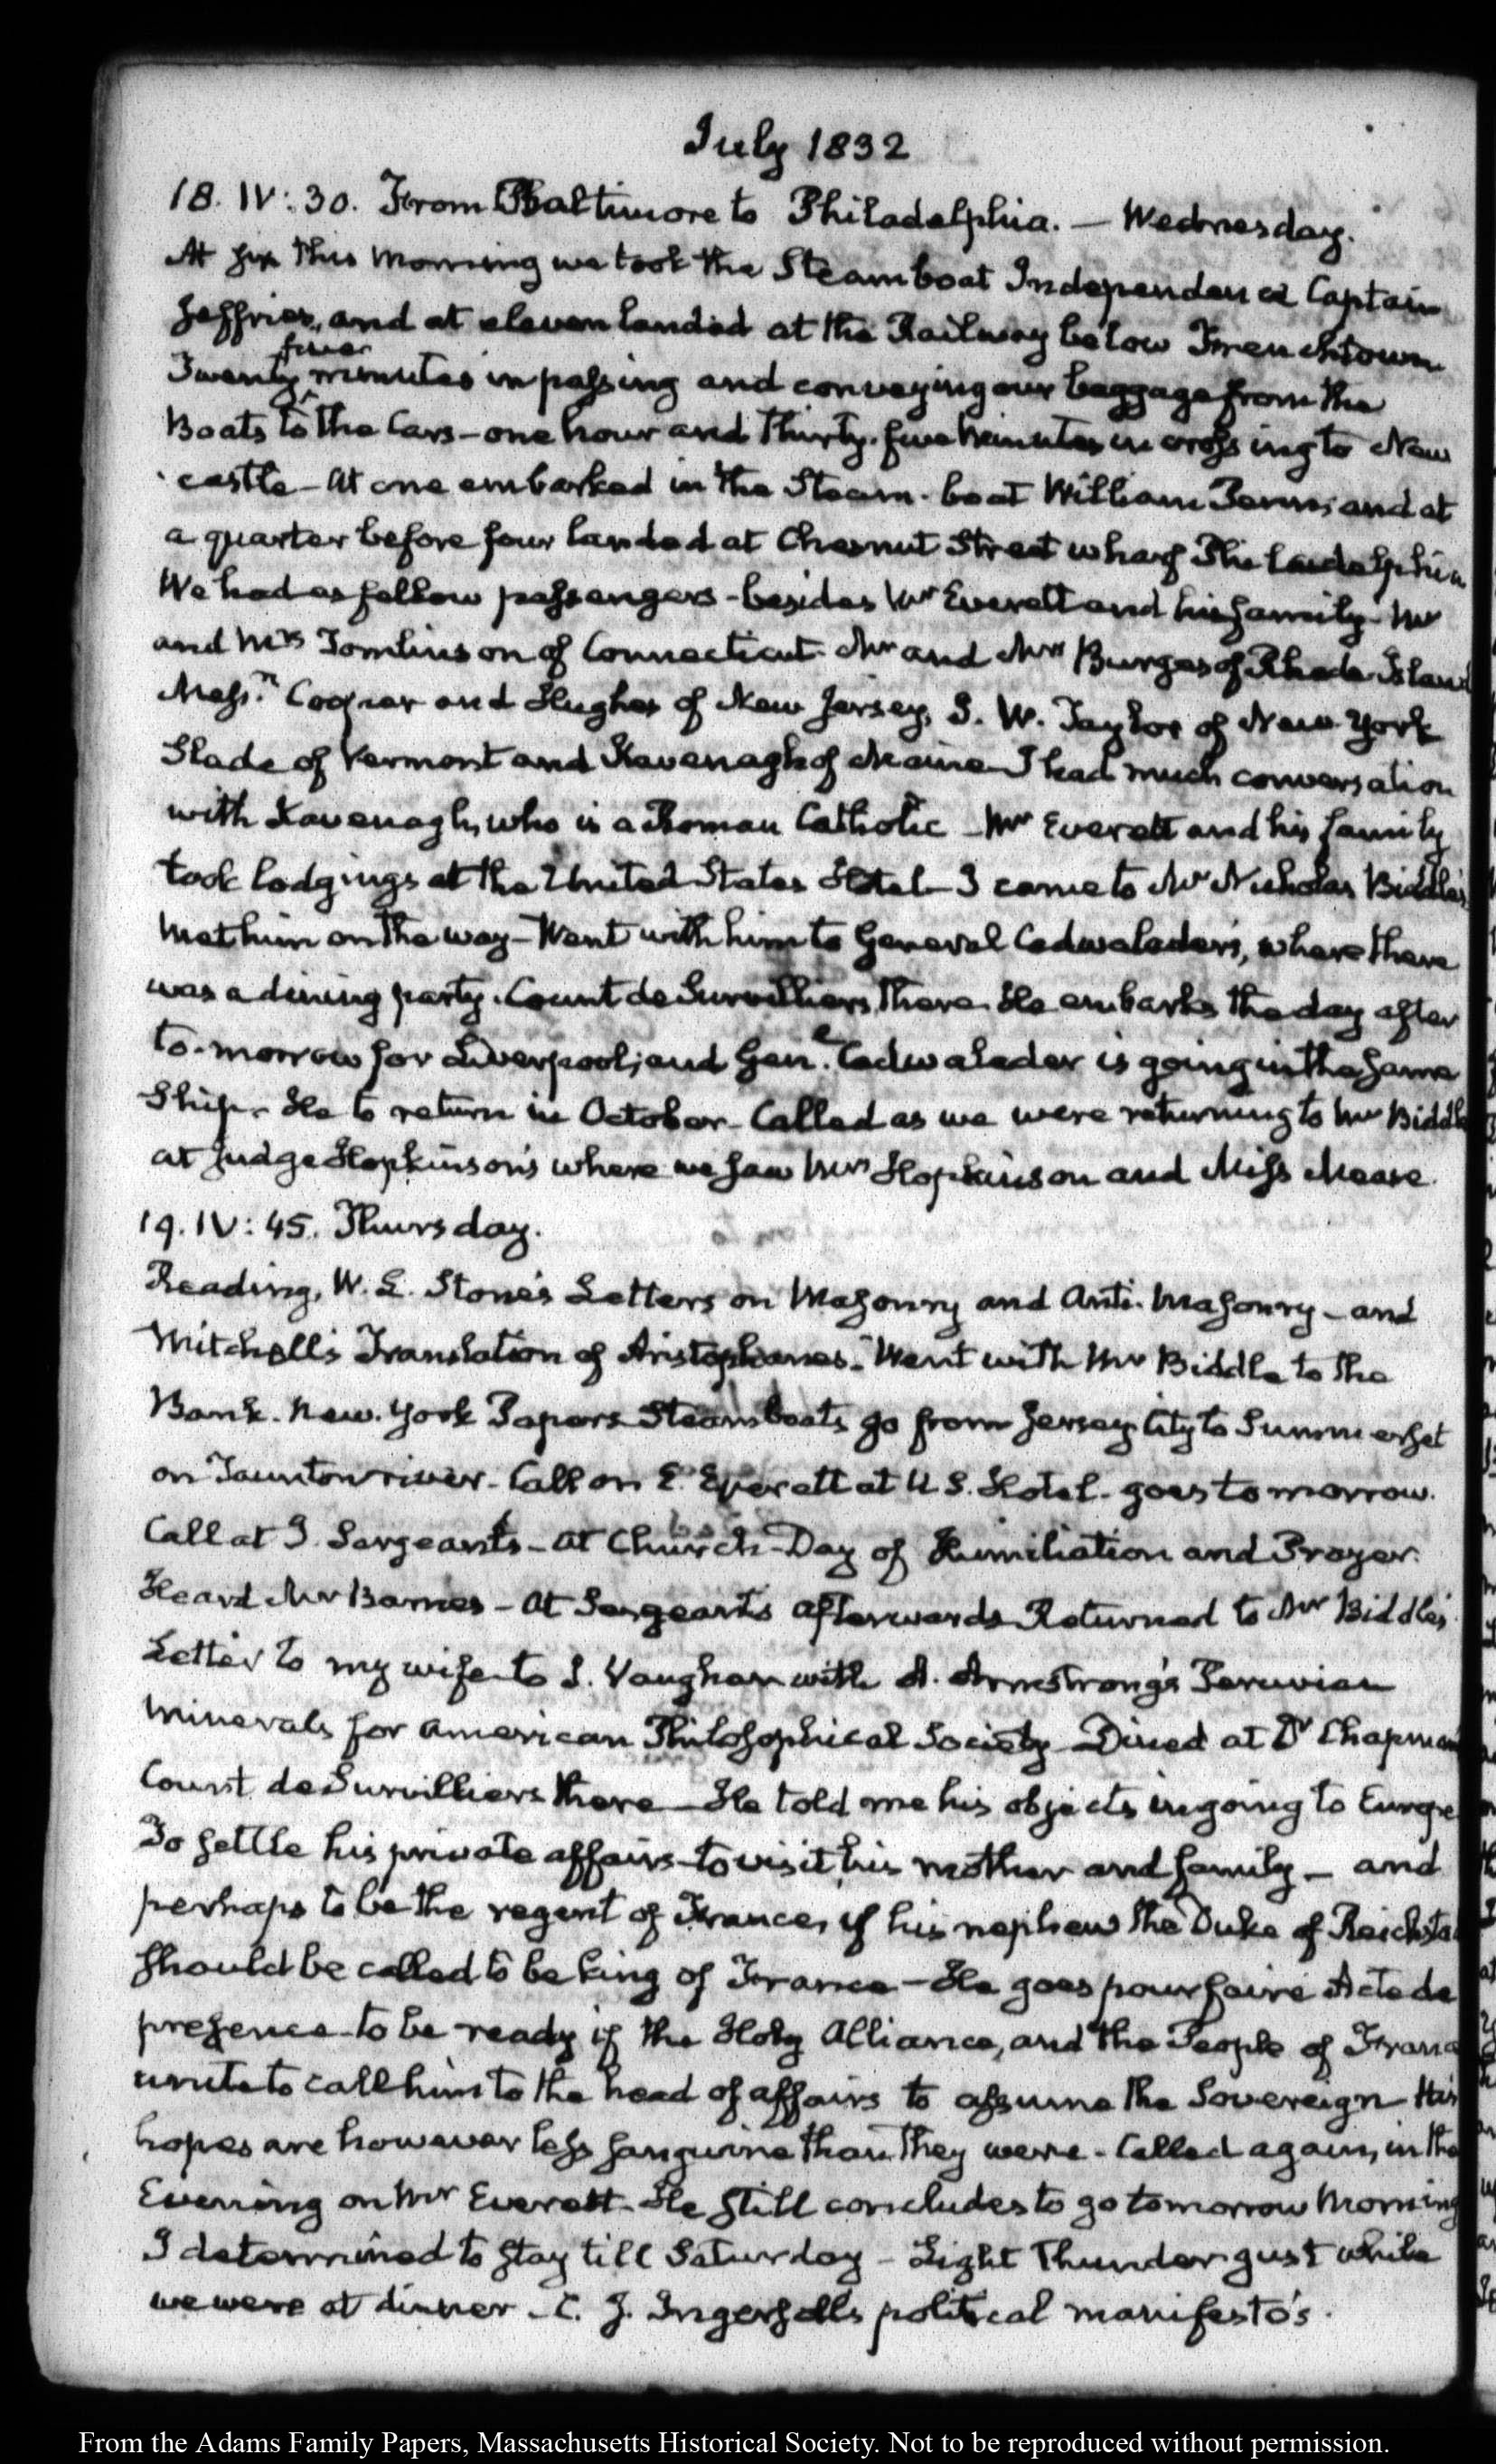 July 1832
18. IV: 30. From Baltimore to Philadelphia. — Wednesday.
At six this morning we took the Steamboat Independence Captain
Jeffries, and at eleven landed at the Railway below Frenchtown
five
Twenty minutes in passing and conveying our baggage from the
Boats to the Cars — one hour and thirty-five minutes in crossing to New
castle — At one embarked in the Steam-boat William Penn; and at
a quarter before four landed at Chesnut Street wharf Philadelphia
We had as fellow passengers — besides Mr Everett and his family — Mr
and Mrs Tomlinson of Connecticut. Mr and Mrs Burges of Rhode Island
Messrs Cooper and Hughes of New Jersey, J. W. Taylor of New York
Slade of Vermont and Kavenagh of Maine — I had much conversation
with Kavenagh, who is a Roman Catholic — Mr Everett and his family
took lodgings at the United States Hotel — I came to Mr Nicholas Biddle's
Met him on the way — Went with him to General Cadwalader's, where there
was a dining party. Count de Survilliers there. He embarks the day after
to-morrow for Liverpool; and Genl. Cadwalader is going in the same
Ship. He to return in October — Called as we were returning to Mr Biddle
at Judge Hopkinson's where we saw Mrs Hopkinson and Miss Mease.
19. IV: 45. Thursday.
Reading, W. L. Stone's Letters on Masonry and Anti-Masonry — and
Mitchell's Translation of Aristophanes. Went with Mr Biddle to the
Bank. New-York Papers Steamboats go from Jersey City to Summerset
on Taunton river — Call on E. Everett at U.S. Hotel — goes tomorrow.
Call at J. Sergeant's — At Church — Day of Humiliation and Prayer.
Heard Mr Barnes — At Sergeant's afterwards Returned to Mr Biddle's.
Letter to my wife — to J. Vaughan with A. Armstrong's Peruvian
minerals for American Philosophical Society — Dined at Dr Chapman
Count de Survilliers there — He told me his objects in going to Europe
To settle his private affairs — to visit his mother and family — and
perhaps to be the regent of France, if his nephew the Duke of Reichsta
should be called to be king of France — He goes pour faire Acte de
presence — to be ready if the Holy Alliance, and the People of France
unite to call him to the head of affairs to assume the Sovereign — His
hopes are however less sanguine than they were — Called again, in the
Evening on Mr Everett — He still concludes to go tomorrow Morning
I determined to stay till Saturday — Light Thunder gust while
we were at dinner — C. J. Ingersoll's political manifesto's.
From the Adams Family Papers, Massachusetts Historical Society. Not to be reproduced without permission.